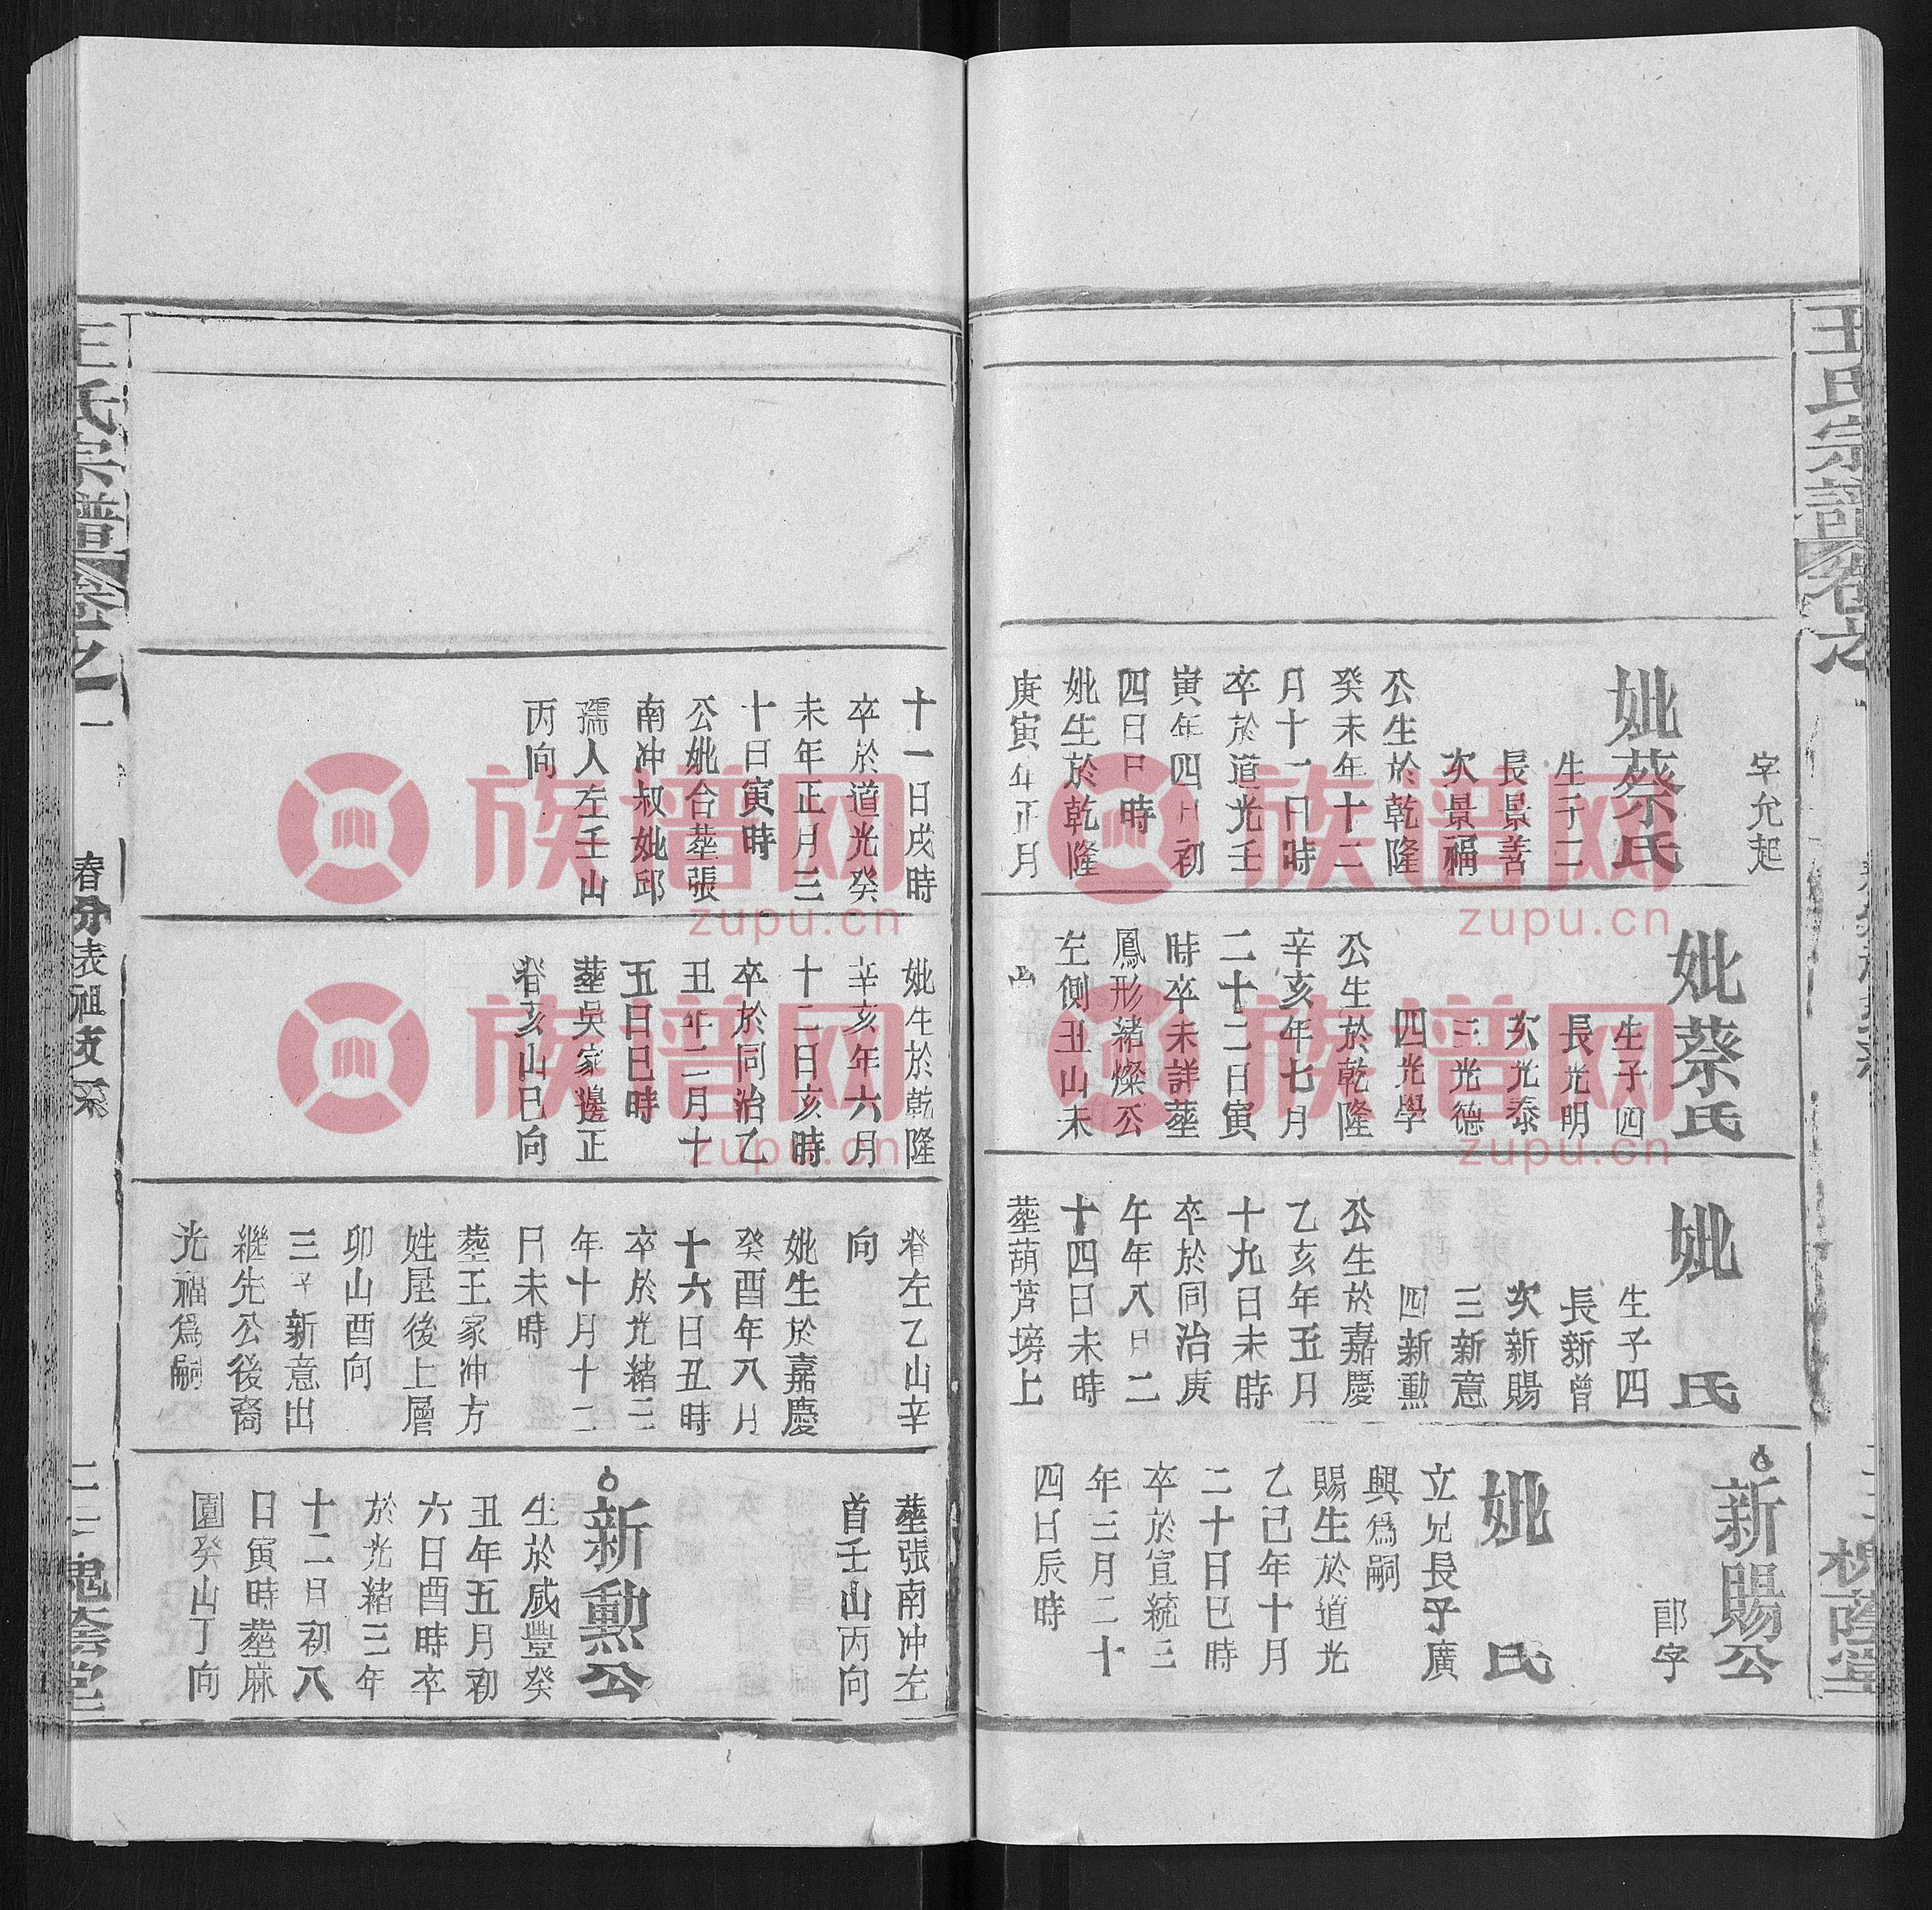 王氏宗譜
卷之
槐蔭堂
字允起
妣蔡氏
生子二
長景善
次景福
公生於乾隆
癸未年十二
月十一日時
卒於道光壬
寅年四月初
四日日時
妣生於乾隆
庚寅年正月
妣蔡氏
生子四
長光明
次光泰
三光德
四光學
公生於乾隆
辛亥年七月
二十二日寅
時卒未詳塟
鳳形緒燦公
左側丑山未
向
妣 氏
生子四
長新曾
次新賜
三新意
四新勳
公生於嘉慶
乙亥年五月
十九日未時
卒於同治庚
午年八月二
十四日未時
塟葫芦塝上
新賜公
郎字
妣 氏
立兄長子廣
興爲嗣
賜生於道光
乙巳年十月
二十日巳時
卒於宣統三
年三月二十
四日辰時
十一日戌時
卒於道光癸
未年正月三
十日寅時
公妣合塟張
南冲叔妣邱
孺人左壬山
丙向
妣生於乾隆
辛亥年六月
十二日亥時
卒於同治乙
丑年二月十
五日巳時
塟吳家邊正
脊亥山巳向
脊左乙山辛
向
妣生於嘉慶
癸酉年八月
十六日丑時
卒於光緒二
年十月十二
日未時
塟王家冲方
姓屋後上層
卯山酉向
三子新意出
繼先公後裔
光福爲嗣
塟張南冲左
首壬山丙向
新勳公
生於咸豐癸
丑年五月初
六日酉時卒
於光緒三年
十二月初八
日寅時塟麻
園癸山丁向
王氏宗譜
卷之一
春分表祖支系
槐蔭堂
族谱网
zupu.cn
族谱网
zupu.cn
族谱网
zupu.cn
族谱网
zupu.cn